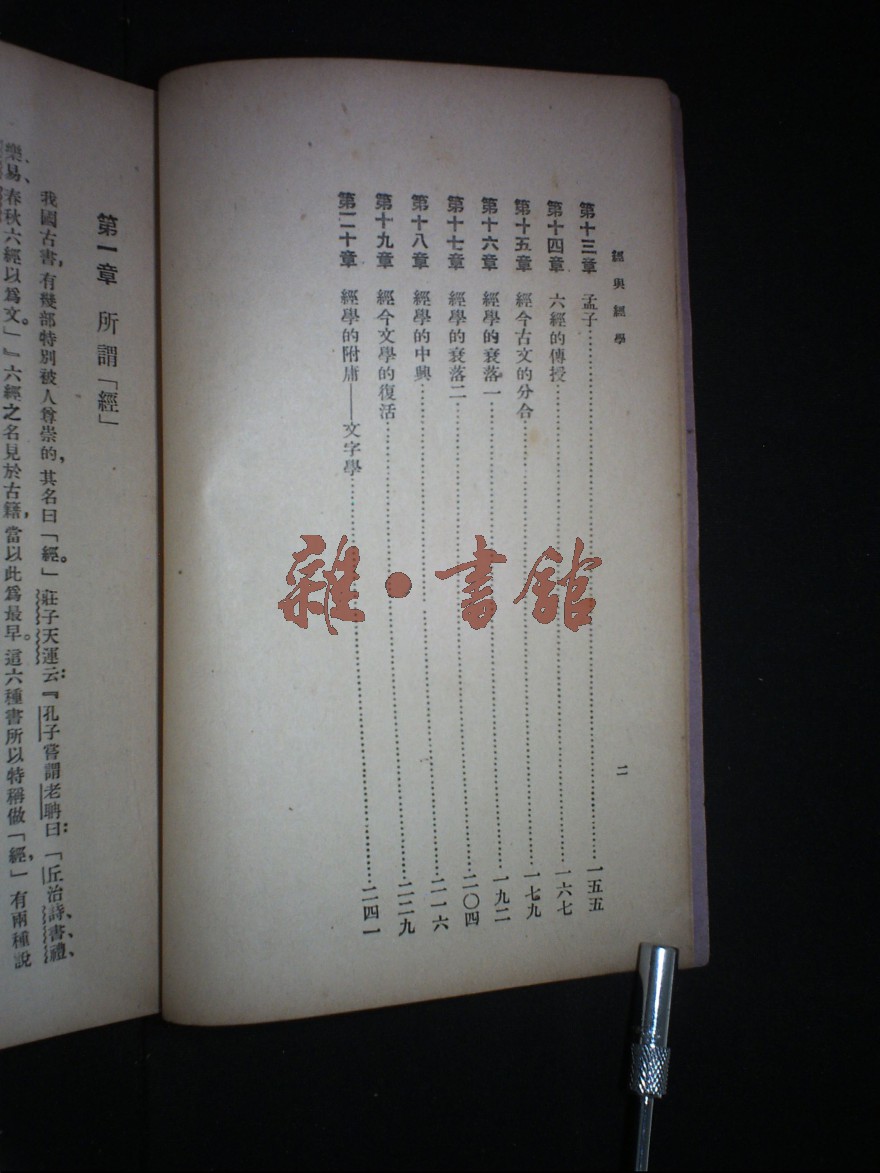 經與經學
二
第十三章 孟子……一五五
第十四章 六經的傳授……一六七
第十五章 經今古文的分合……一七九
第十六章 經學的衰落一……一九二
第十七章 經學的衰落二……二〇四
第十八章 經學的中興……二一六
第十九章 經今文學的復活……二二九
第二十章 經學的附庸——文字學……二四一
第一章 所謂「經」
我國古書，有幾部特別被人尊崇的，其名曰「經。」莊子天運云：『孔子嘗謂老聃曰：「丘治詩、書、禮、
樂、易、春秋六經以爲文。」』六經之名見於古籍，當以此爲最早。這六種書所以特稱做「經，」有兩種說
雜·書館